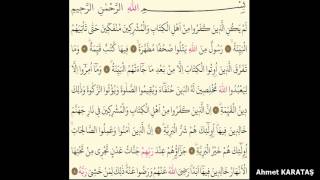 بِسْمِ اللّٰهِ الرَّحْمٰنِ الرَّحِيمِ
لَمْ يَكُنِ الَّذِينَ كَفَرُوا مِنْ اَهْلِ الْكِتَابِ وَالْمُشْرِكِينَ مُنْفَكِّينَ حَتّٰى تَأْتِيَهُمُ
الْبَيِّنَةُ ۙ رَسُولٌ مِنَ اللّٰهِ يَتْلُوا صُحُفًا مُطَهَّرَةً ۙ فِيهَا كُتُبٌ قَيِّمَةٌ ۜ وَمَا
تَفَرَّقَ الَّذِينَ اُو۫تُوا الْكِتَابَ اِلَّا مِنْ بَعْدِ مَا جَٓاءَتْهُمُ الْبَيِّنَةُ ۜ وَمَٓا اُمِرُٓوا اِلَّا
لِيَعْبُدُوا اللّٰهَ مُخْلِصِينَ لَهُ الدِّينَ حُنَفَٓاءَ وَيُقِيمُوا الصَّلٰوةَ وَيُؤْتُوا الزَّكٰوةَ وَذٰلِكَ
دِينُ الْقَيِّمَةِ ۜ اِنَّ الَّذِينَ كَفَرُوا مِنْ اَهْلِ الْكِتَابِ وَالْمُشْرِكِينَ فِي نَارِ جَهَنَّمَ
خَالِدِينَ فِيهَا اُو۬لٰٓئِكَ هُمْ شَرُّ الْبَرِيَّةِ ۜ اِنَّ الَّذِينَ اٰمَنُوا وَعَمِلُوا الصَّالِحَاتِ
اُو۬لٰٓئِكَ هُمْ خَيْرُ الْبَرِيَّةِ ۜ جَزَٓاؤُ۬هُمْ عِنْدَ رَبِّهِمْ جَنَّاتُ عَدْنٍ تَجْرِي مِنْ تَحْتِهَا
الْاَنْهَارُ خَالِدِينَ فِيهَٓا اَبَدًا رَضِيَ اللّٰهُ عَنْهُمْ وَرَضُوا عَنْهُ ذٰلِكَ لِمَنْ خَشِيَ رَبَّهُ
Ahmet KARATAŞ